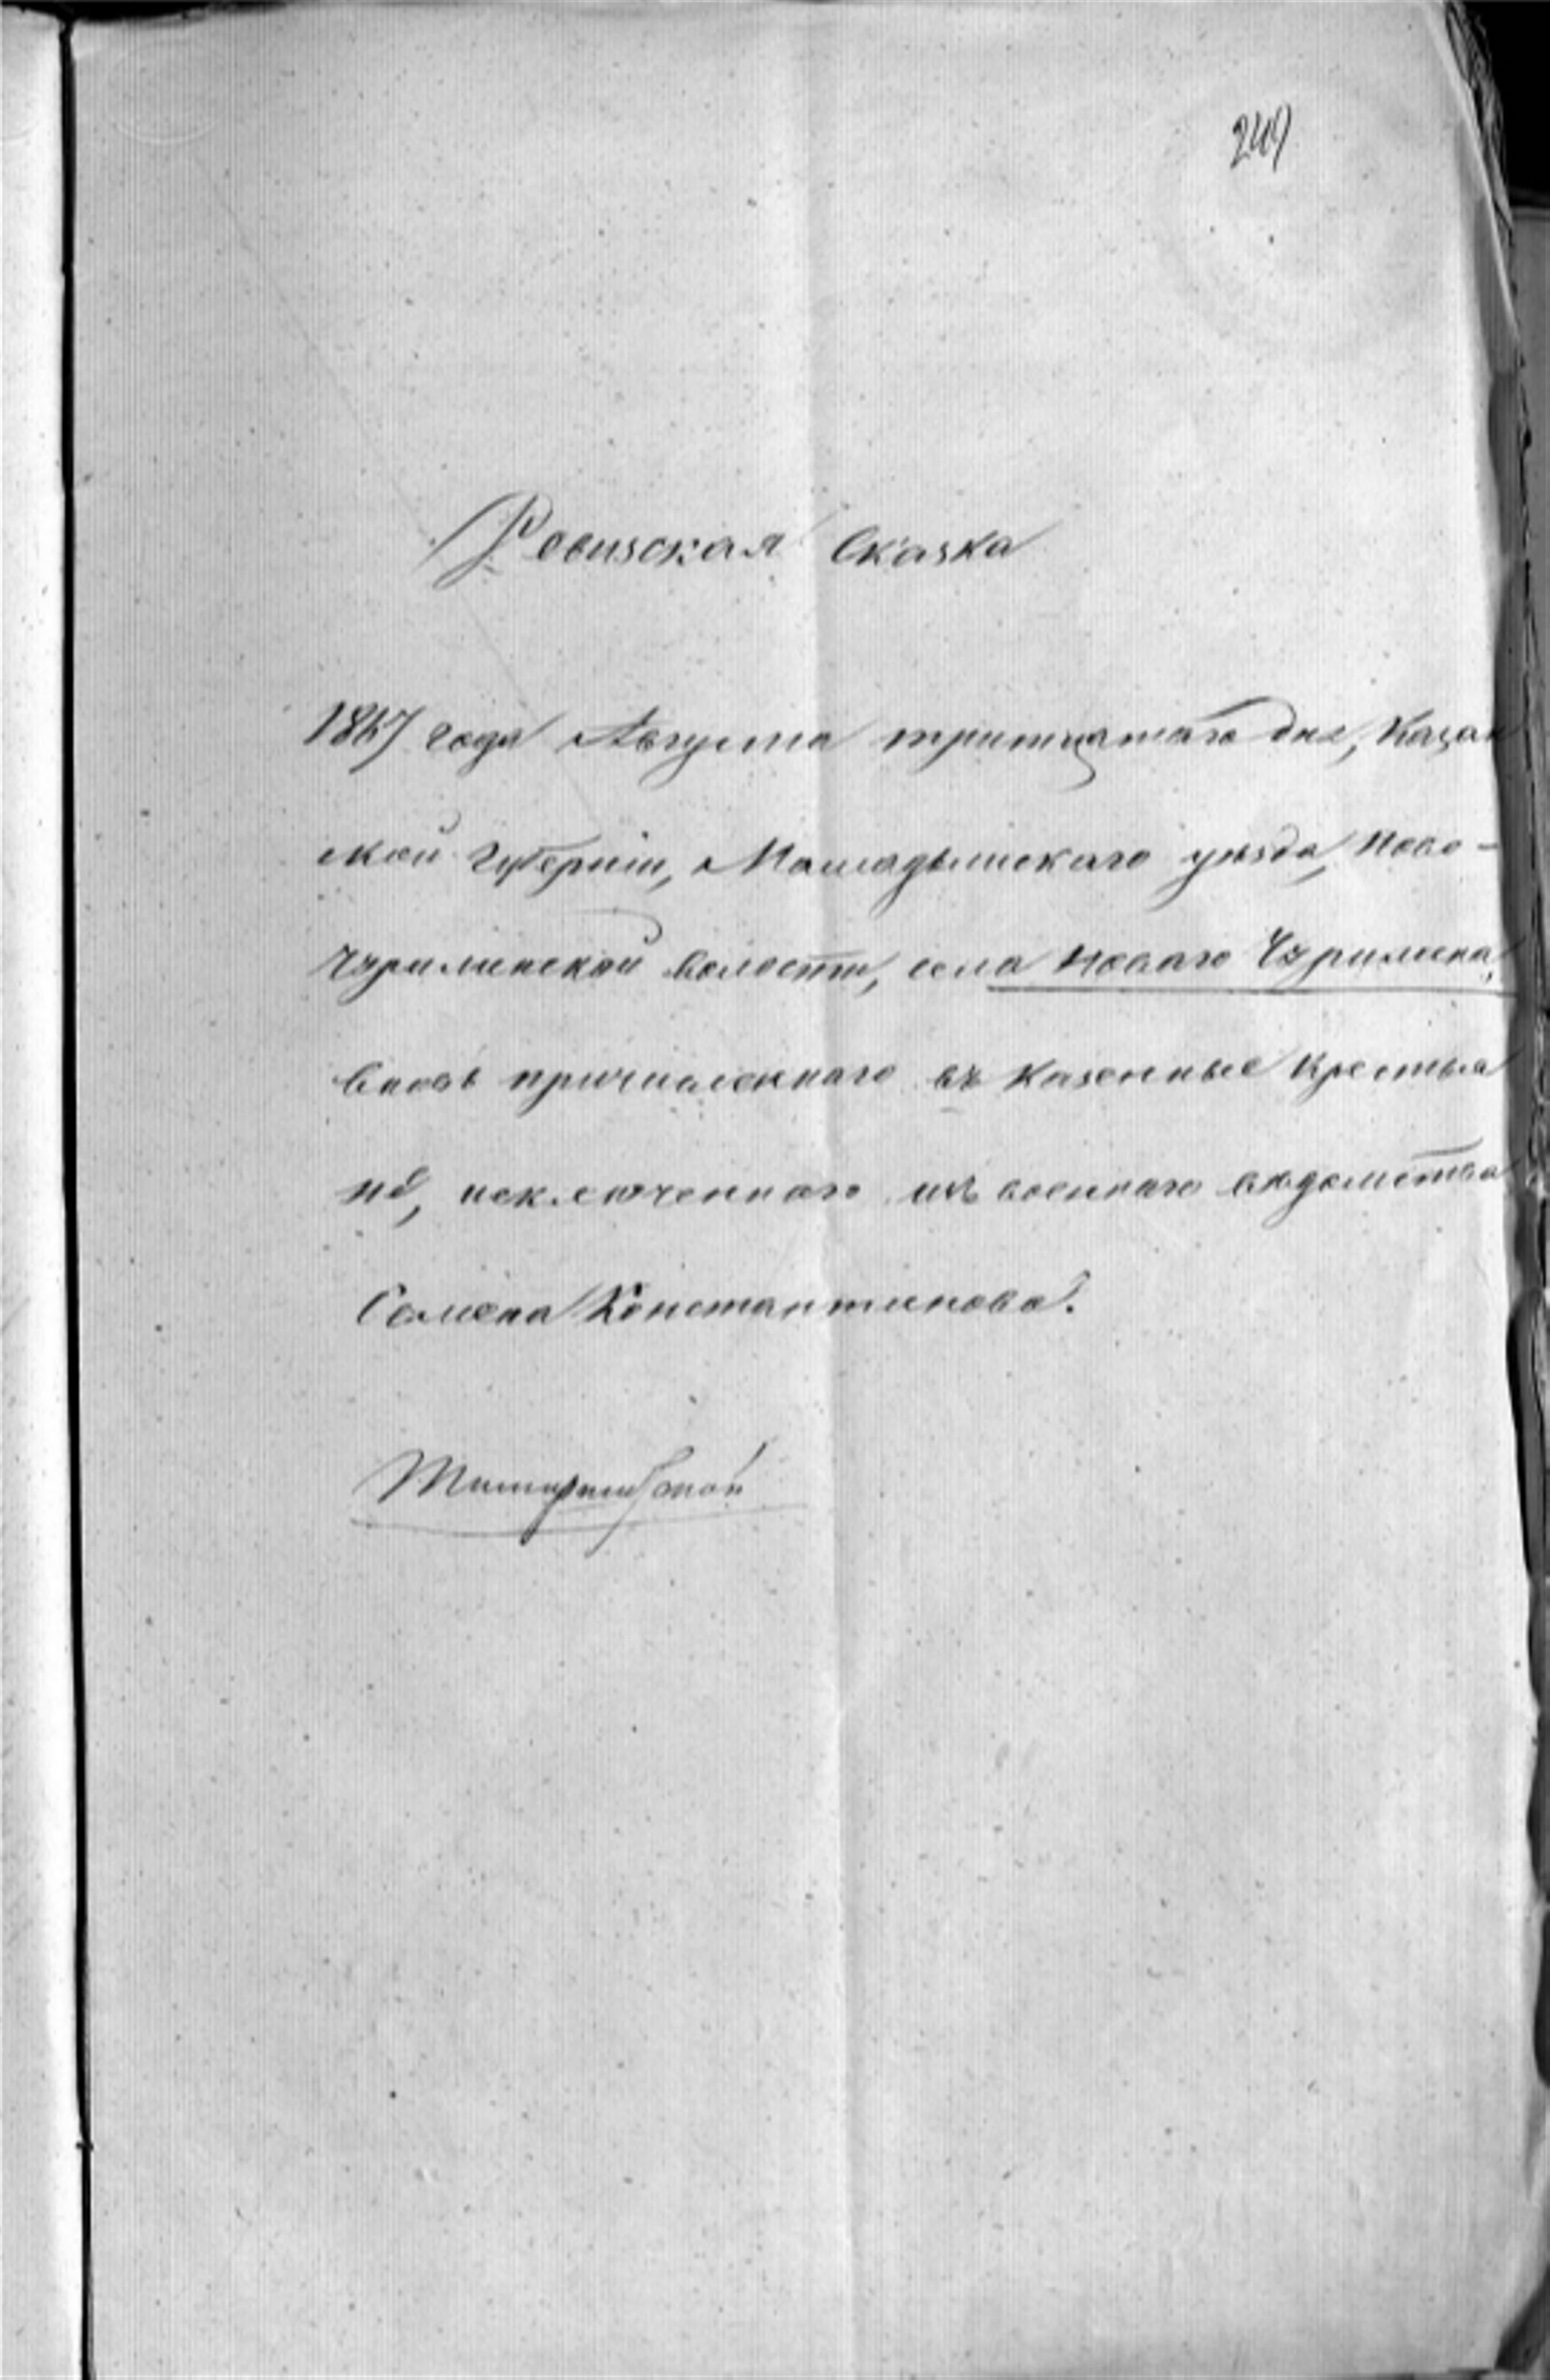 249
Ревизская Сказка
1857 года Августа тритцатаго дня, Казан
ской губерніи, Мамадышскаго уѣзда, Ново-
Чурилинской волости, села Новаго Чурилина,
вновь причисленнаго въ казенные крестья
нѣ, исключеннаго изъ военнаго вѣдомства
Семена Константинова.